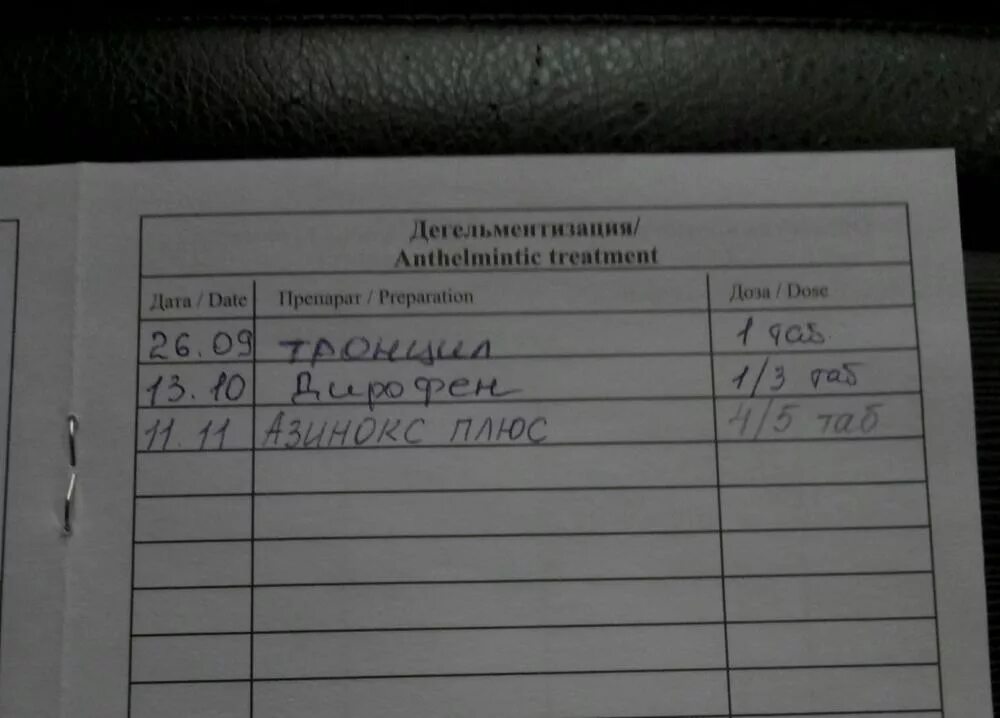 Дегельментизация/
Anthelmintic treatment
Дата / Date Препарат / Preparation Доза / Dose
26.09 тронцил 1 таб.
13.10 Дирофен 1/3 таб
11.11 АЗИНОКС ПЛЮС 4/5 таб